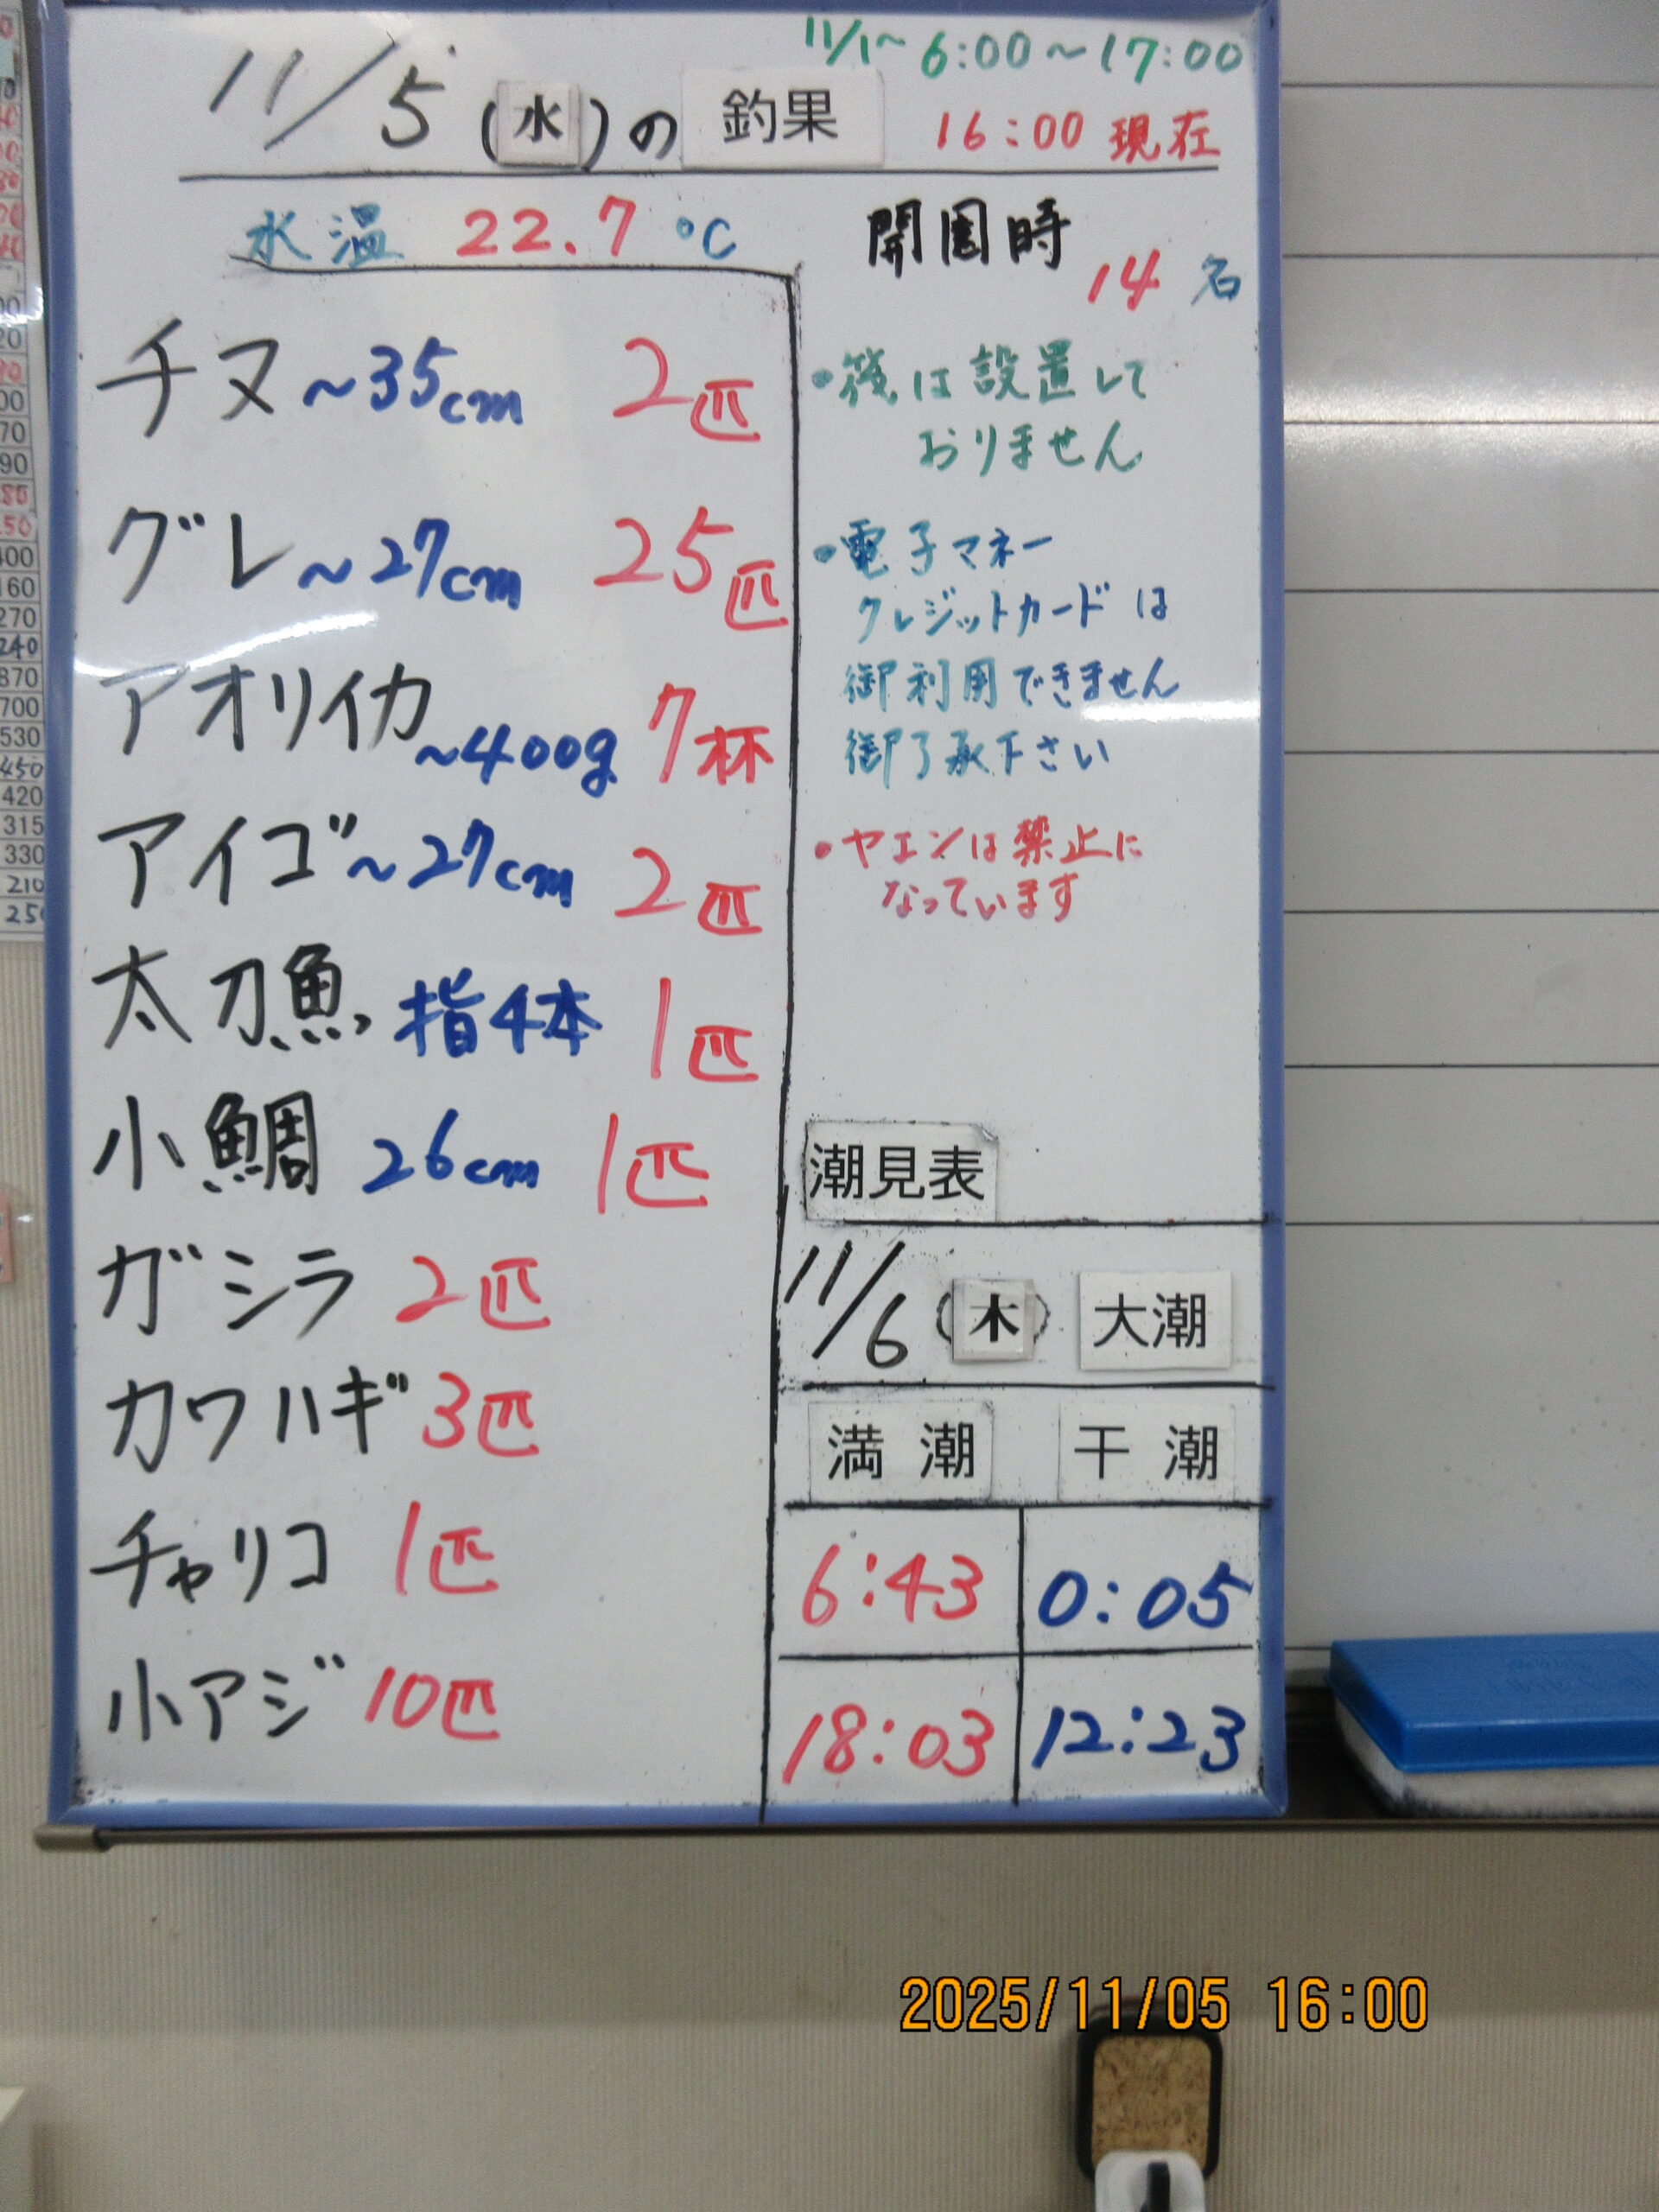 11/1~ 6:00~17:00
11/5(水)の 釣果
16:00 現在
水温 22.7 ℃
開園時
14 名
チヌ ~35cm 2匹
グレ ~27cm 25匹
アオリイカ ~400g 7杯
アイゴ ~27cm 2匹
太刀魚 指4本 1匹
小鯛 26cm 1匹
ガシラ 2匹
カワハギ 3匹
チャリコ 1匹
小アジ 10匹
・筏は設置して
おりません
・電子マネー
クレジットカードは
御利用できません
御了承下さい
・ヤエンは禁止に
なっています
潮見表
11/6 (木) 大潮
満潮 干潮
6:43 0:05
18:03 12:23
2025/11/05 16:00